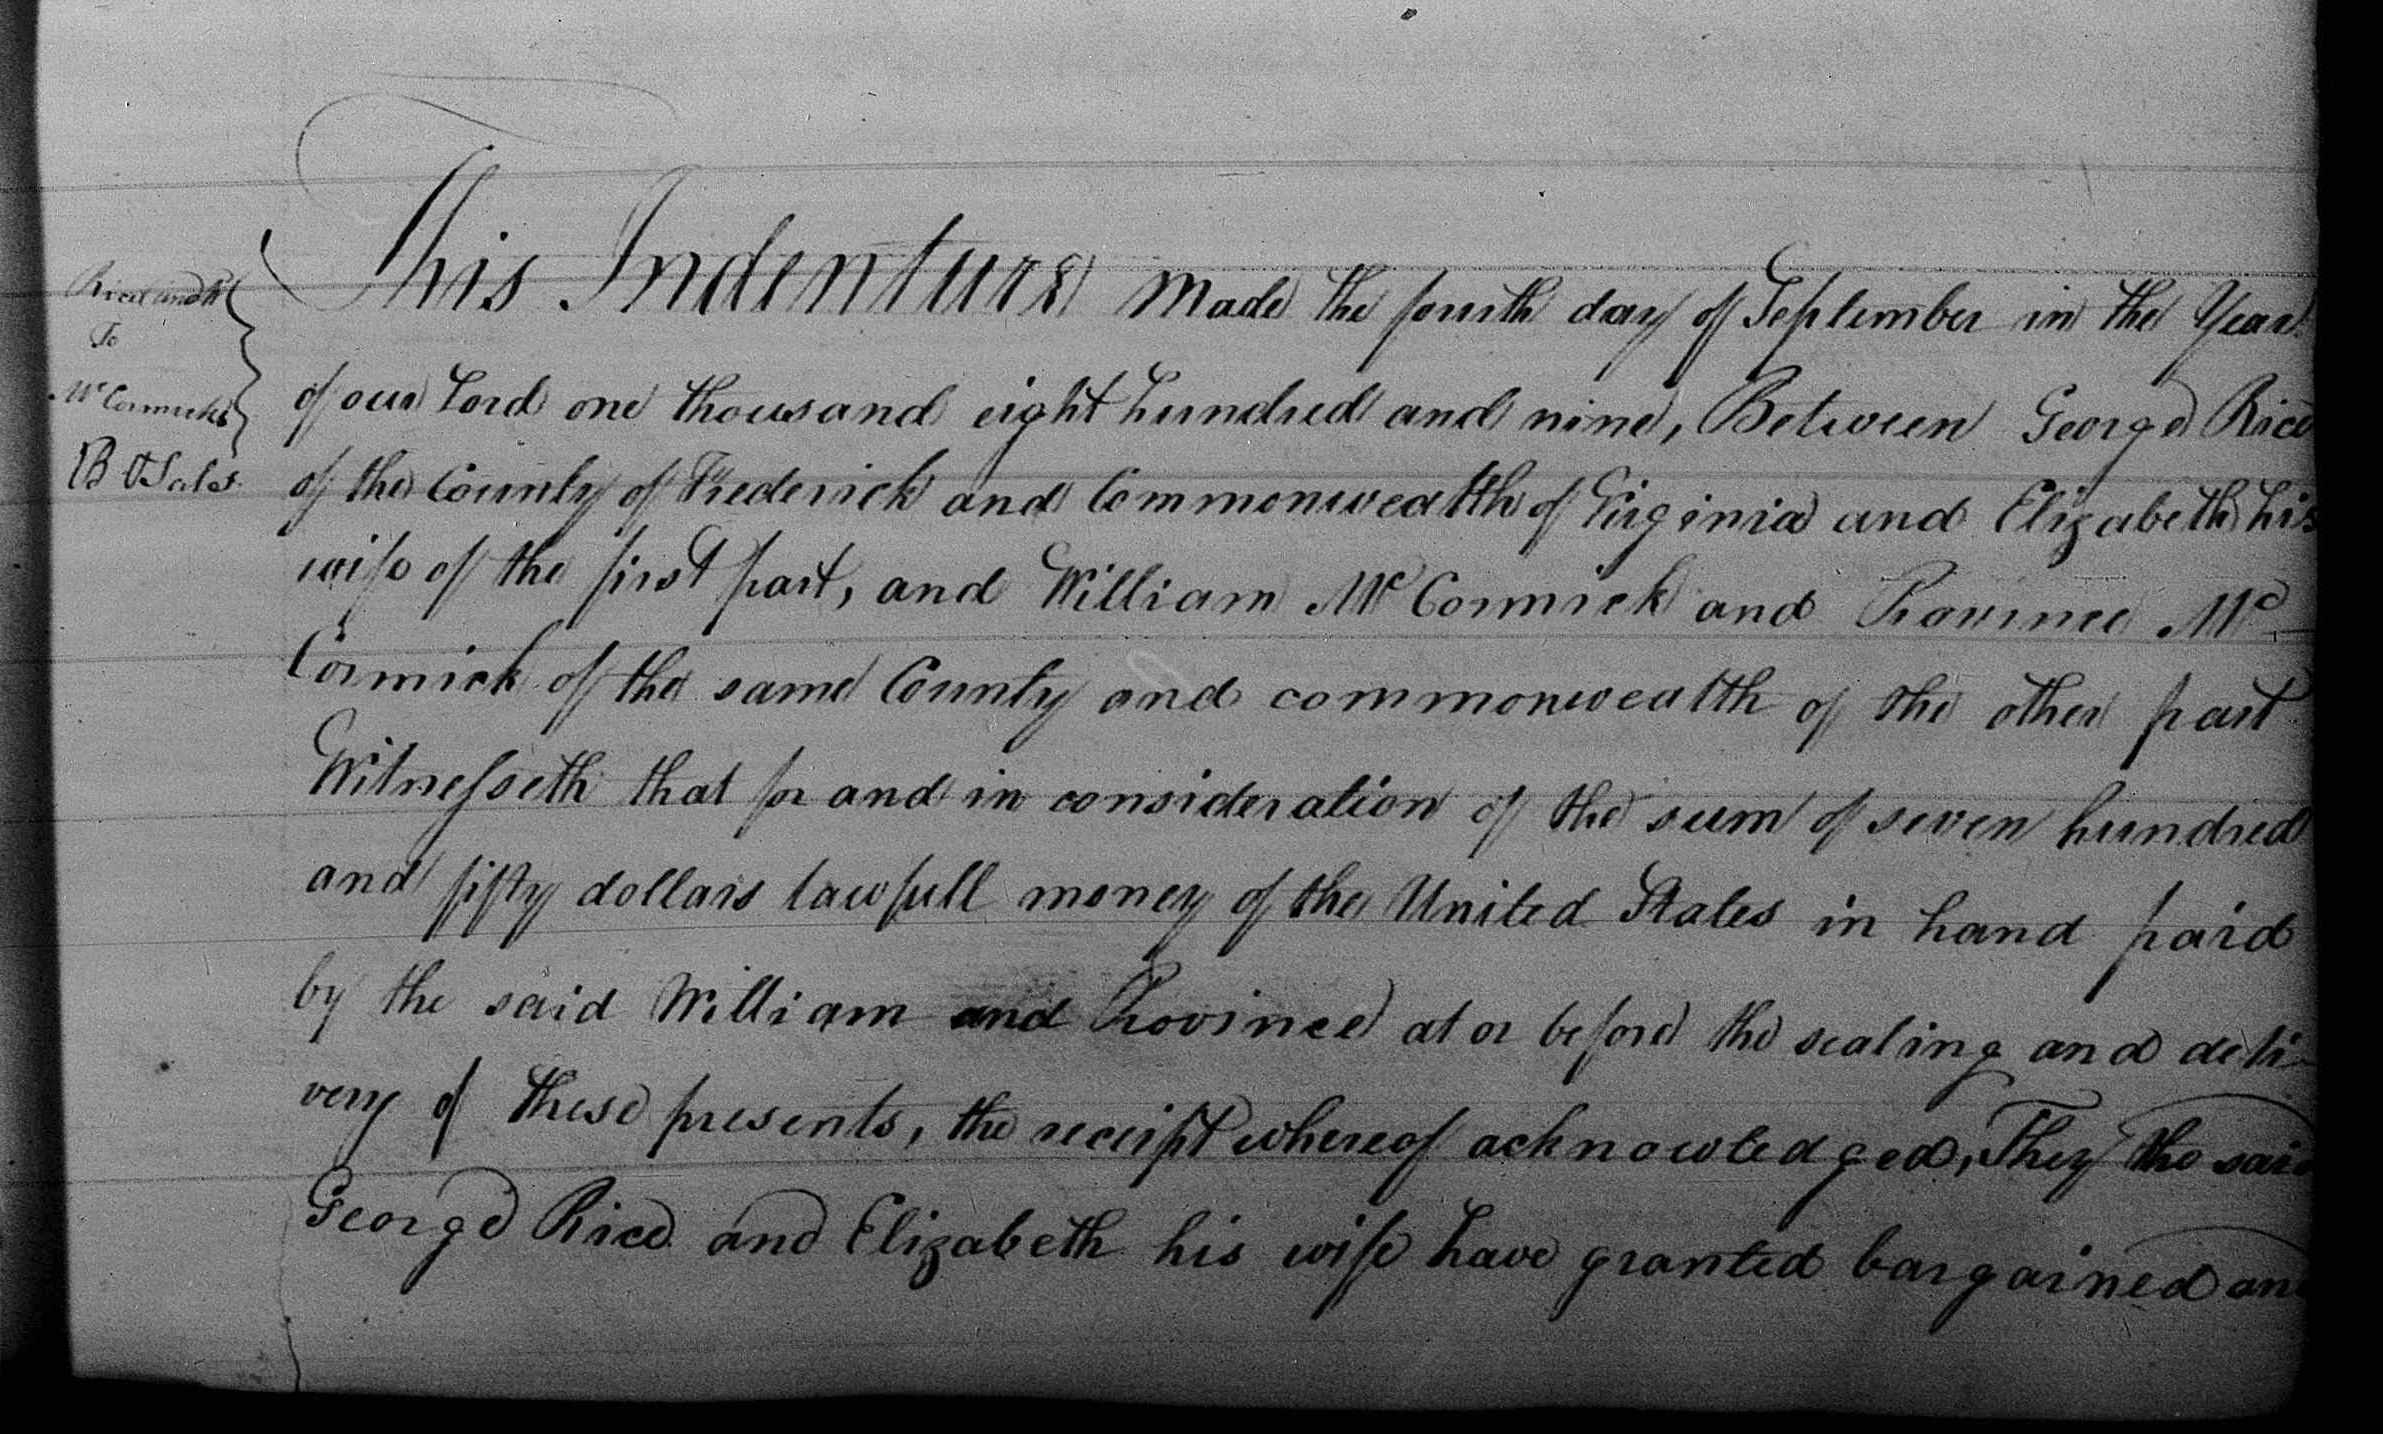 This Indenture Made the fourth day of September in the Year
of our Lord one thousand eight hundred and nine, Between George Rice
of the County of Frederick and Commonwealth of Virginia and Elizabeth his
wife of the first part, and William Mc Cormick and Province Mc
Cormick of the same County and commonwealth of the other part
Witnesseth that for and in consideration of the sum of seven hundred
and fifty dollars lawfull money of the United States in hand paid
by the said William and Province at or before the sealing and deli-
very of these presents, the receipt whereof acknowledged, They the said
George Rice and Elizabeth his wife have granted bargained and
Rice
To
McCormicks
B & Sale